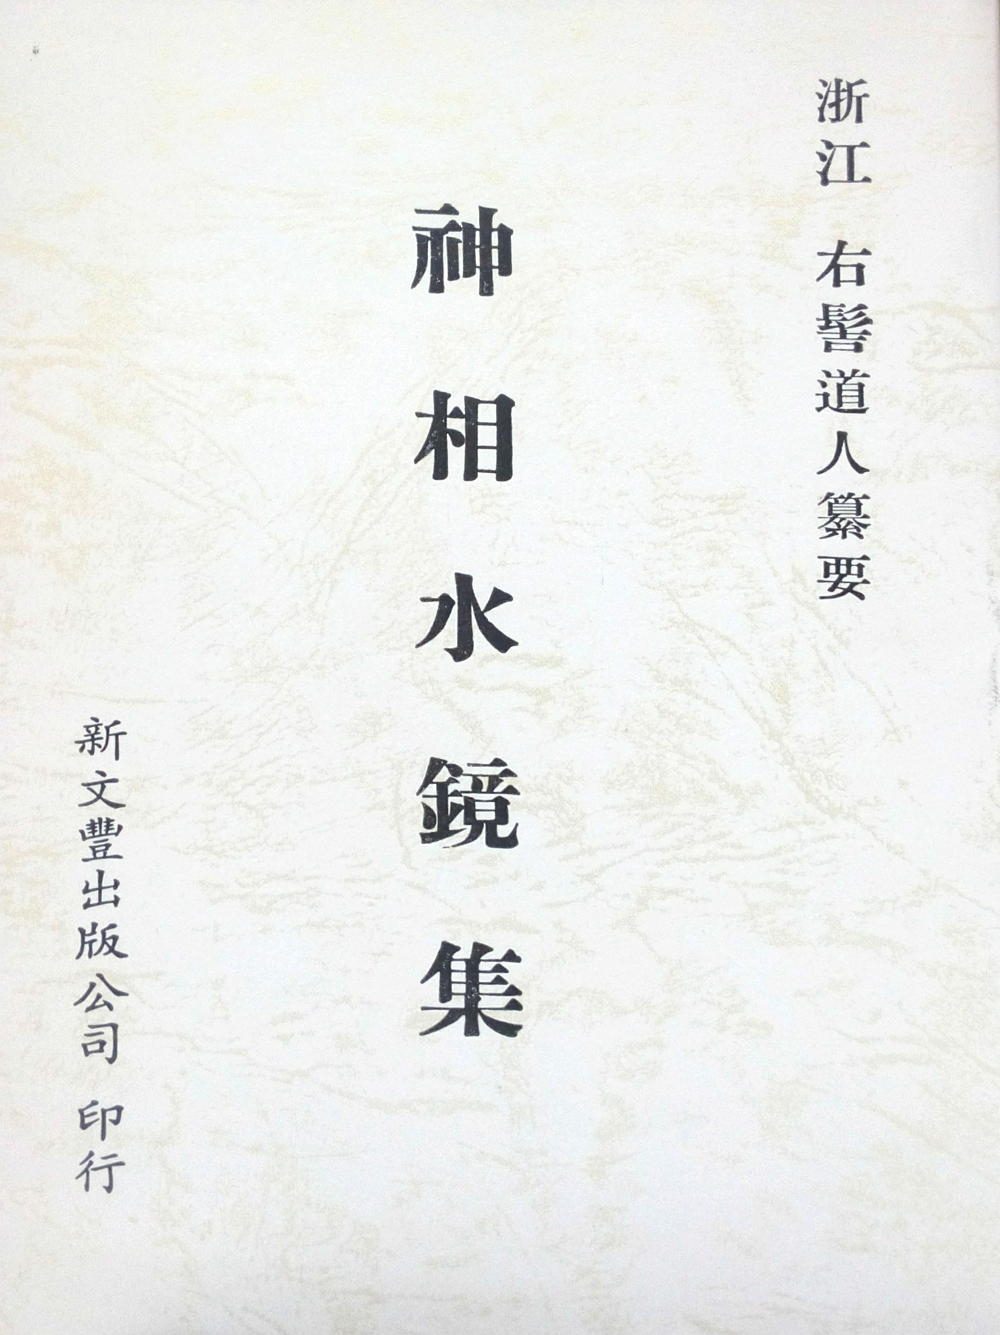 浙江 右髻道人纂要
神相水鏡集
新文豐出版公司 印行